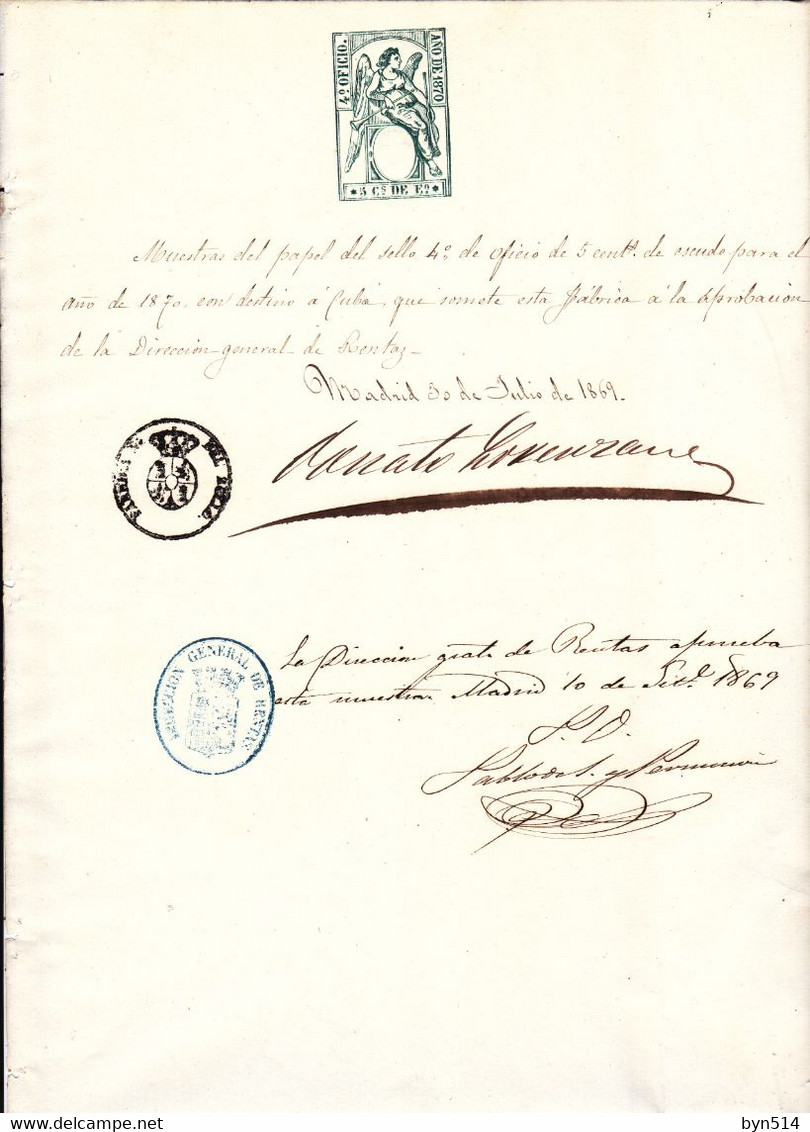 4º OFICIO.
AÑO DE 1870
* 5 Cs DE Eo *
Muestras del papel del sello 4º de oficio de 5 cents. de escudo para el
año de 1870. con destino á Cuba que somete esta Fábrica á la aprobacion
de la Direccion general de Rentas.
Madrid 30 de Julio de 1869.
Donato Lorenzana
DEL SELLO.
La Direccion gral. de Rentas aprueba
esta muestra Madrid 10 de Set.e 1869
P. O.
DIRECCION GENERAL DE RENTAS
Pablo de S. y
delcampe.net
byn514